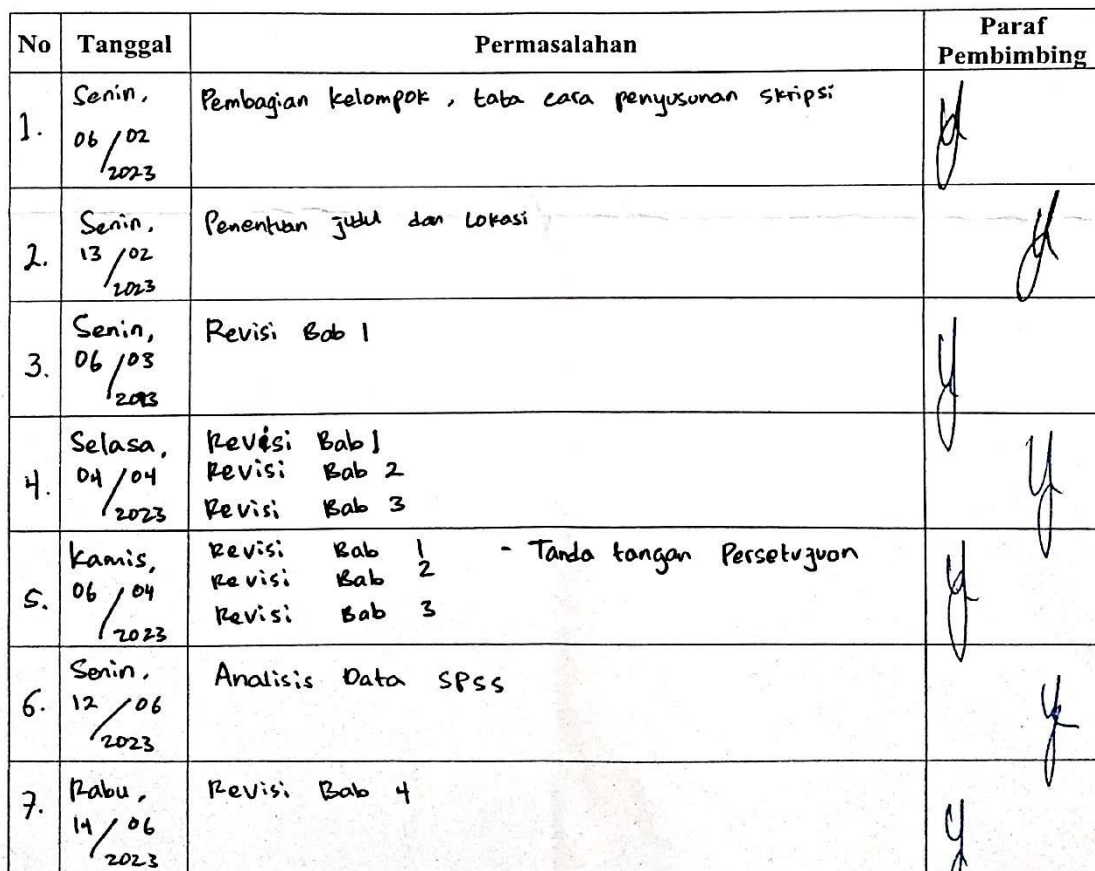 No Tanggal Permasalahan Paraf Pembimbing
1. Senin, 06/02 2023 Pembagian kelompok, tata cara penyusunan skripsi
2. Senin, 13/02 2023 Penentuan judul dan Lokasi
3. Senin, 06/03 2023 Revisi Bab 1
4. Selasa, 04/04 2023 Revisi Bab 1
Revisi Bab 2
Revisi Bab 3
5. Kamis, 06/04 2023 Revisi Bab 1 - Tanda tangan Persetujuan
Revisi Bab 2
Revisi Bab 3
6. Senin, 12/06 2023 Analisis Data SPSS
7. Rabu, 14/06 2023 Revisi Bab 4